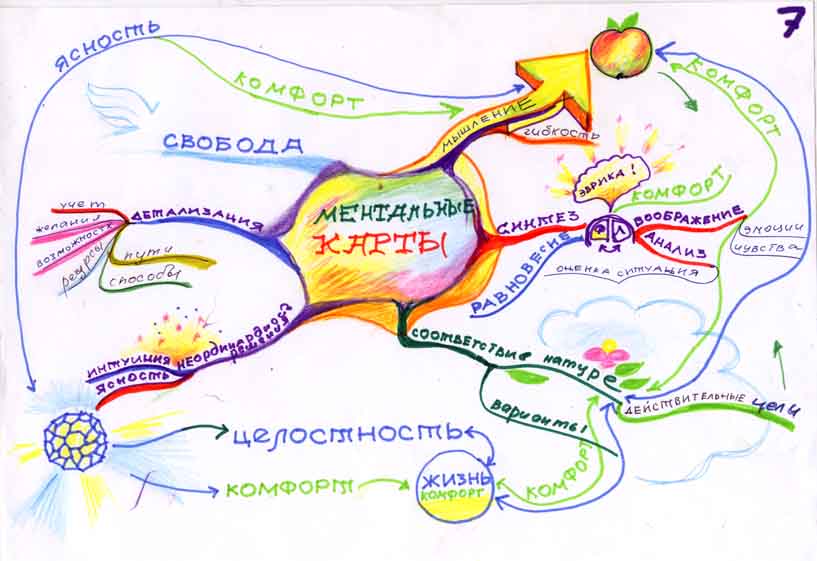 7
ЯСНОСТЬ
КОМФОРТ
КОМФОРТ
МЫШЛЕНИЕ
ГИБКОСТЬ
СВОБОДА
ЭВРИКА!
КОМФОРТ
МЕНТАЛЬНЫЕ
КАРТЫ
ДЕТАЛИЗАЦИЯ
учет
желания
возможность
ресурсы
пути
способы
СИНТЕЗ
П Л
ВООБРАЖЕНИЕ
АНАЛИЗ
эмоции
чувства
РАВНОВЕСИЕ
ОЦЕНКА СИТУАЦИЯ
НЕОРДИНАРНОЗТ
РЕШЕНИЯ
ИНТУИЦИЯ
ЯСНОСТЬ
соответствие натуре
варианты
ДЕЙСТВИТЕЛЬНЫЕ ЦЕЛИ
ЦЕЛОСТНОСТЬ
КОМФОРТ
ЖИЗНЬ
КОМФОРТ
КОМФОРТ